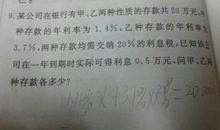 C.8
9.某公司在银行有甲、乙两种性质的存款共20万元,甲
种存款的年利率为1.4%,乙种存款的年利率为
3.7%,两种存款均需交纳20%的利息税,已知该公
司在一年到期时实际可得利息0.5万元,问甲、乙两
种存款各多少?